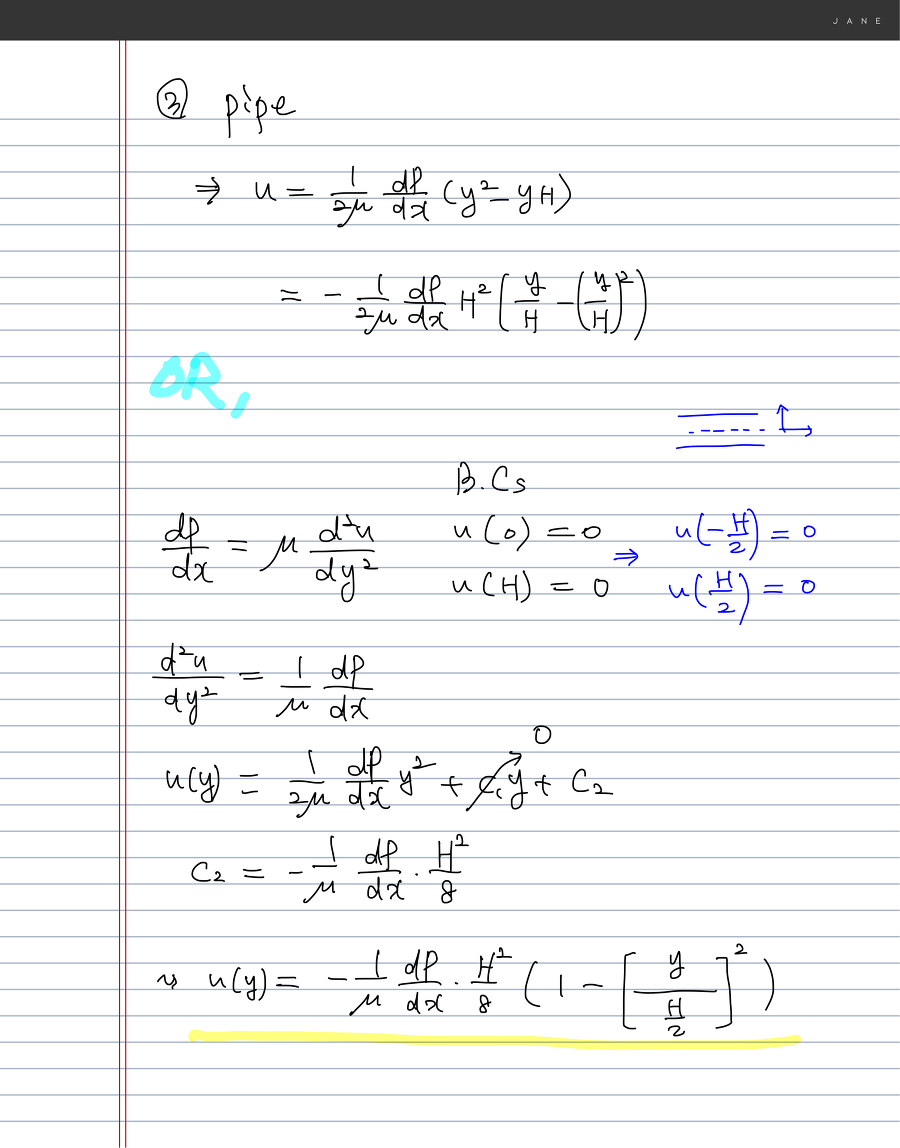 JANE
③ pipe
⇒ u = 1/2μ dP/dx (y² - yH)
= - 1/2μ dP/dx H² [y/H - (y/H)²)
OR,
B.Cs
dP/dx = μ d²u/dy² u(0) = 0 ⇒ u(-H/2) = 0
u(H) = 0 u(H/2) = 0
d²u/dy² = 1/μ dP/dx
0
u(y) = 1/2μ dP/dx y² + C₁y + C₂
C₂ = - 1/μ dP/dx · H²/8
↝ u(y) = - 1/μ dP/dx · H²/8 (1 - [y/(H/2)]²)